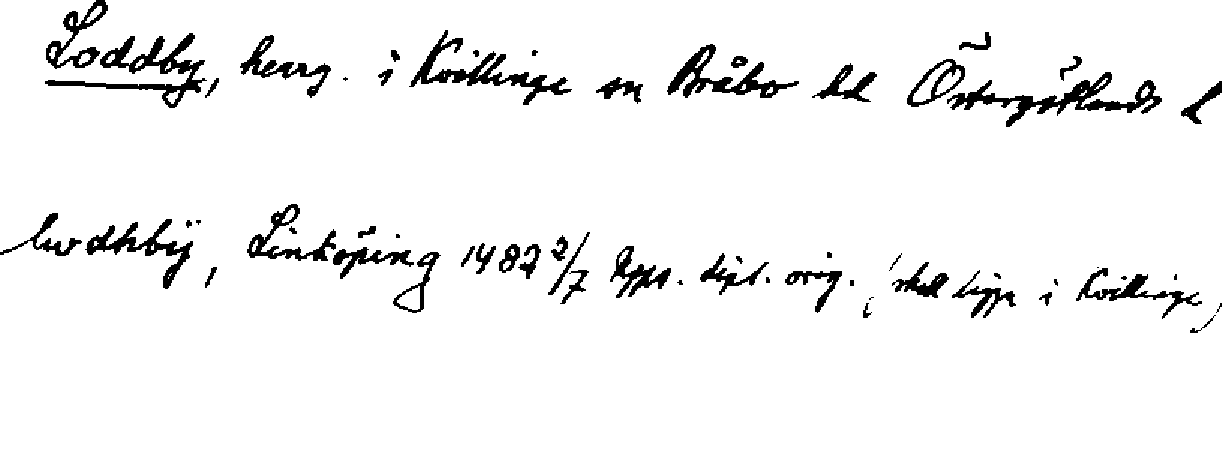 Loddby, herrg. i Kvillinge sn Bråbo hd Östergötlands l
lwdhby, Linköping 1487 2/7 Upps. dipl. orig. (skall ligga i Kvillinge)